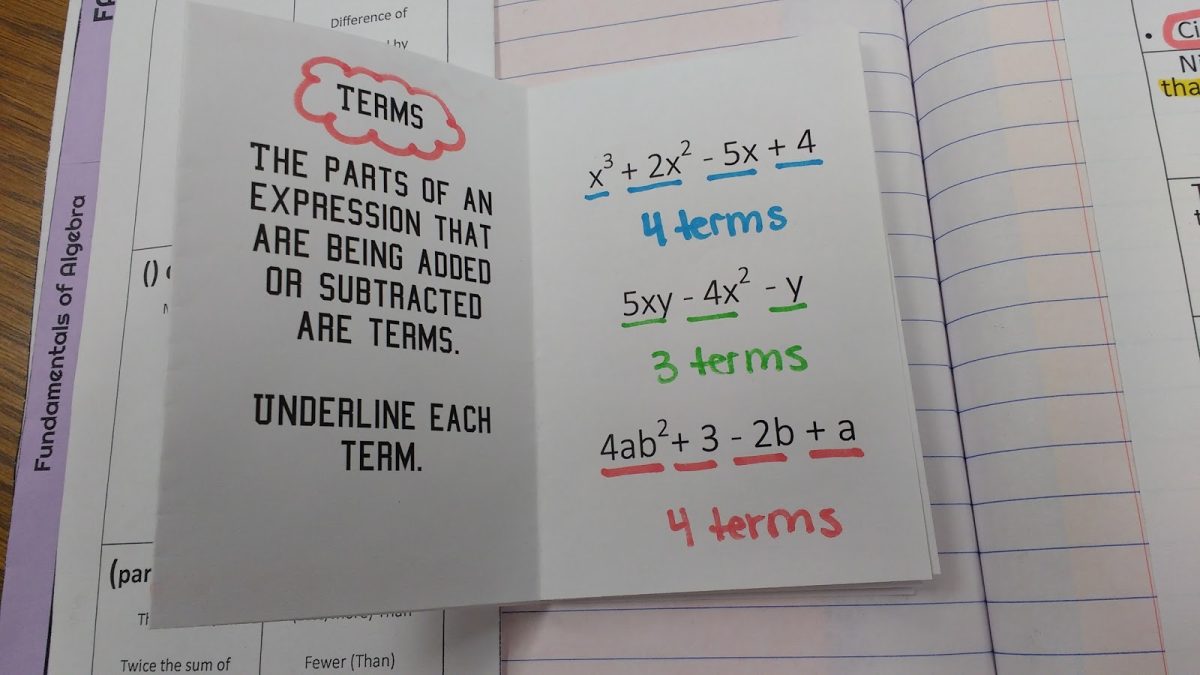 Fundamentals of Algebra
Difference of
by
()
(par
Twice the sum of
Fewer (Than)
TERMS
THE PARTS OF AN
EXPRESSION THAT
ARE BEING ADDED
OR SUBTRACTED
ARE TERMS.
UNDERLINE EACH
TERM.
x³ + 2x² - 5x + 4
4 terms
5xy - 4x² - y
3 terms
4ab² + 3 - 2b + a
4 terms